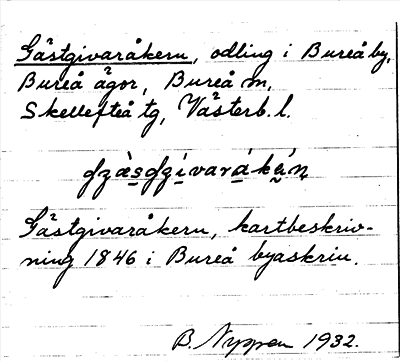 Gästgivaråkern, odling i Bureå by,
Bureå ägor, Bureå m,
Skellefteå tg, Västerb. l.
Gästgivaråkern, kartbeskriv-
ning 1846 i Bureå byaskrin.
B. Nyppen 1932.